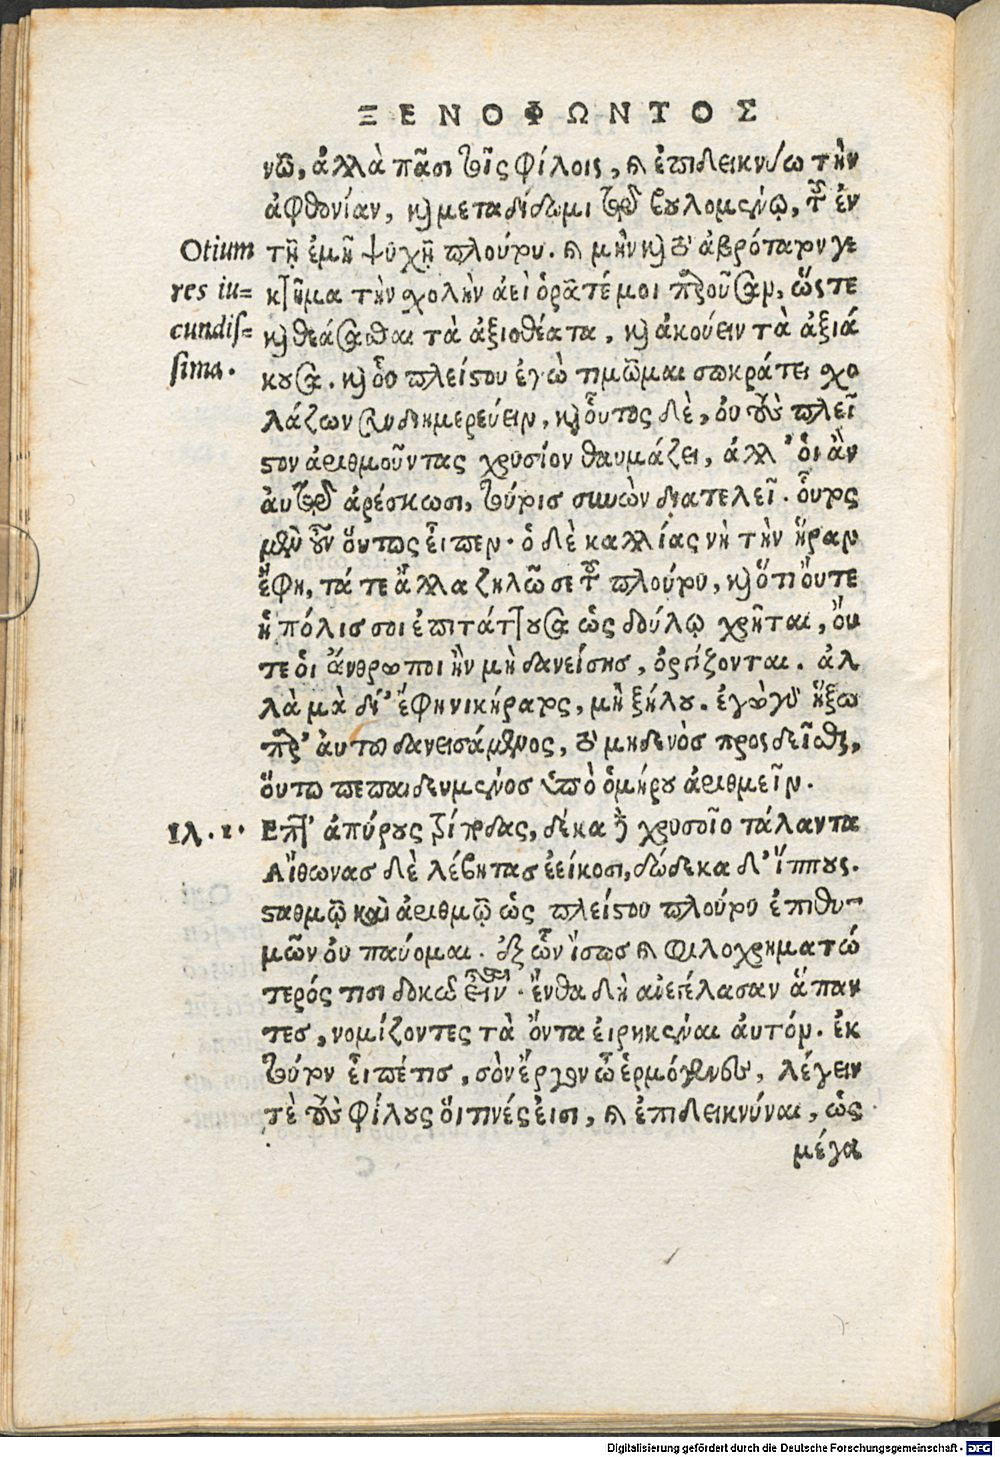 ΞΕΝΟΦΩΝΤΟΣ
νῶ, ἀλλὰ πᾶσι τοῖς φίλοις, καὶ ἐπιδεικνύω τὴν
ἀφθονίαν, καὶ μεταδίδωμι τῷ βουλομένῳ, τοῦ ἐν
Otium
τῇ ἐμῇ ψυχῇ πλούτου. καὶ μὴν καὶ τὸ ἁβρότατον γε
res iu=
κτῆμα τὴν σχολὴν ἀεὶ ὁρᾶτέ μοι παροῦσαν, ὥστε
cundis=
καὶ θεάσασθαι τὰ ἀξιοθέατα, καὶ ἀκούειν τὰ ἀξιά
sima.
κουσα. καὶ ὃ πλείστου ἐγὼ τιμῶμαι σωκράτει σχο
λάζων συνδιημερεύειν, καὶ οὗτος δὲ, οὐ τοὺς πλεῖ
στον ἀριθμοῦντας χρυσίον θαυμάζει, ἀλλ' ὁι ἂν
ἀυτῷ ἀρέσκωσι, τούτοις συνὼν διατελεῖ. οὗτος
μὲν οὖν ὅυτως εἶπεν. ὁ δὲ καλλίας νὴ τὴν ἥραν
ἔφη, τά τε ἄλλα ζηλῶ σε τοῦ πλούτου, καὶ ὅτι ὄυτε
ἡ πόλις σοι ἐπιτάττουσα ὡς δούλῳ χρῆται, ὄυ
τε ὁι ἄνθρωποι ἢν μὴ δανείσῃς, ὀργίζονται. ἀλ
λὰ μὰ δί' ἔφη νικήρατος, μὴ ζήλου. ἐγὼ γὰρ ἥξω
παρ' ἀυτοῦ δανεισάμενος, τὸ μηδενὸς προσδεῖσθαι,
ὅυτω πεπαιδευμένος ὑπὸ ὁμήρου ἀριθμεῖν.
Ιλ. ι.
Επτ' ἀπύρους τρίποδας, δέκα δὲ χρυσοῖο τάλαντα
Αἴθωνας δὲ λέβητας ἐείκοσι, δώδεκα δ' ἵππους.
σταθμῷ καὶ ἀριθμῷ ὡς πλείστου πλούτου ἐπιθυ-
μῶν οὐ παύομαι. ἐξ ὧν ἴσως καὶ φιλοχρηματώ
τερός τισι δοκῶ εἶναι. ἔνθα δὴ ἀνεγέλασαν ἅπαν
τες, νομίζοντες τὰ ὄντα ἐιρηκέναι ἀυτόν. ἐκ
τούτου εἶπέ τις, σὸν ἔργον ὦ ἑρμόγενες, λέγειν
τὲ τοὺς φίλους ὅιτινές ἐισι, καὶ ἐπιδεικνύναι, ὡς
μέγα
Digitalisierung gefördert durch die Deutsche Forschungsgemeinschaft - DFG